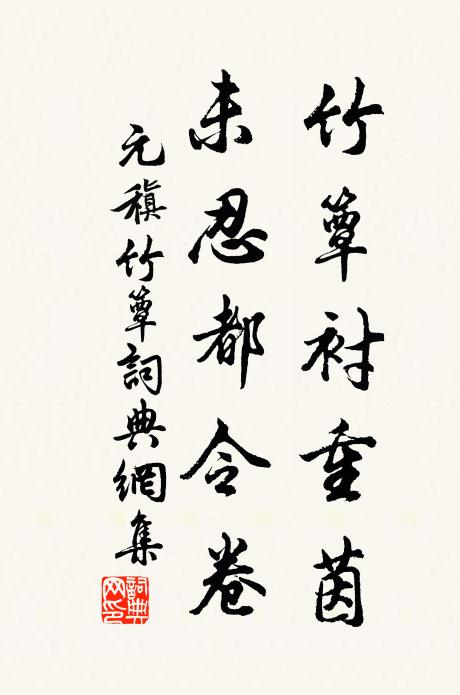 竹簟衬重茵
未忍都令卷
元稹竹簟詞典網集
詞典網印